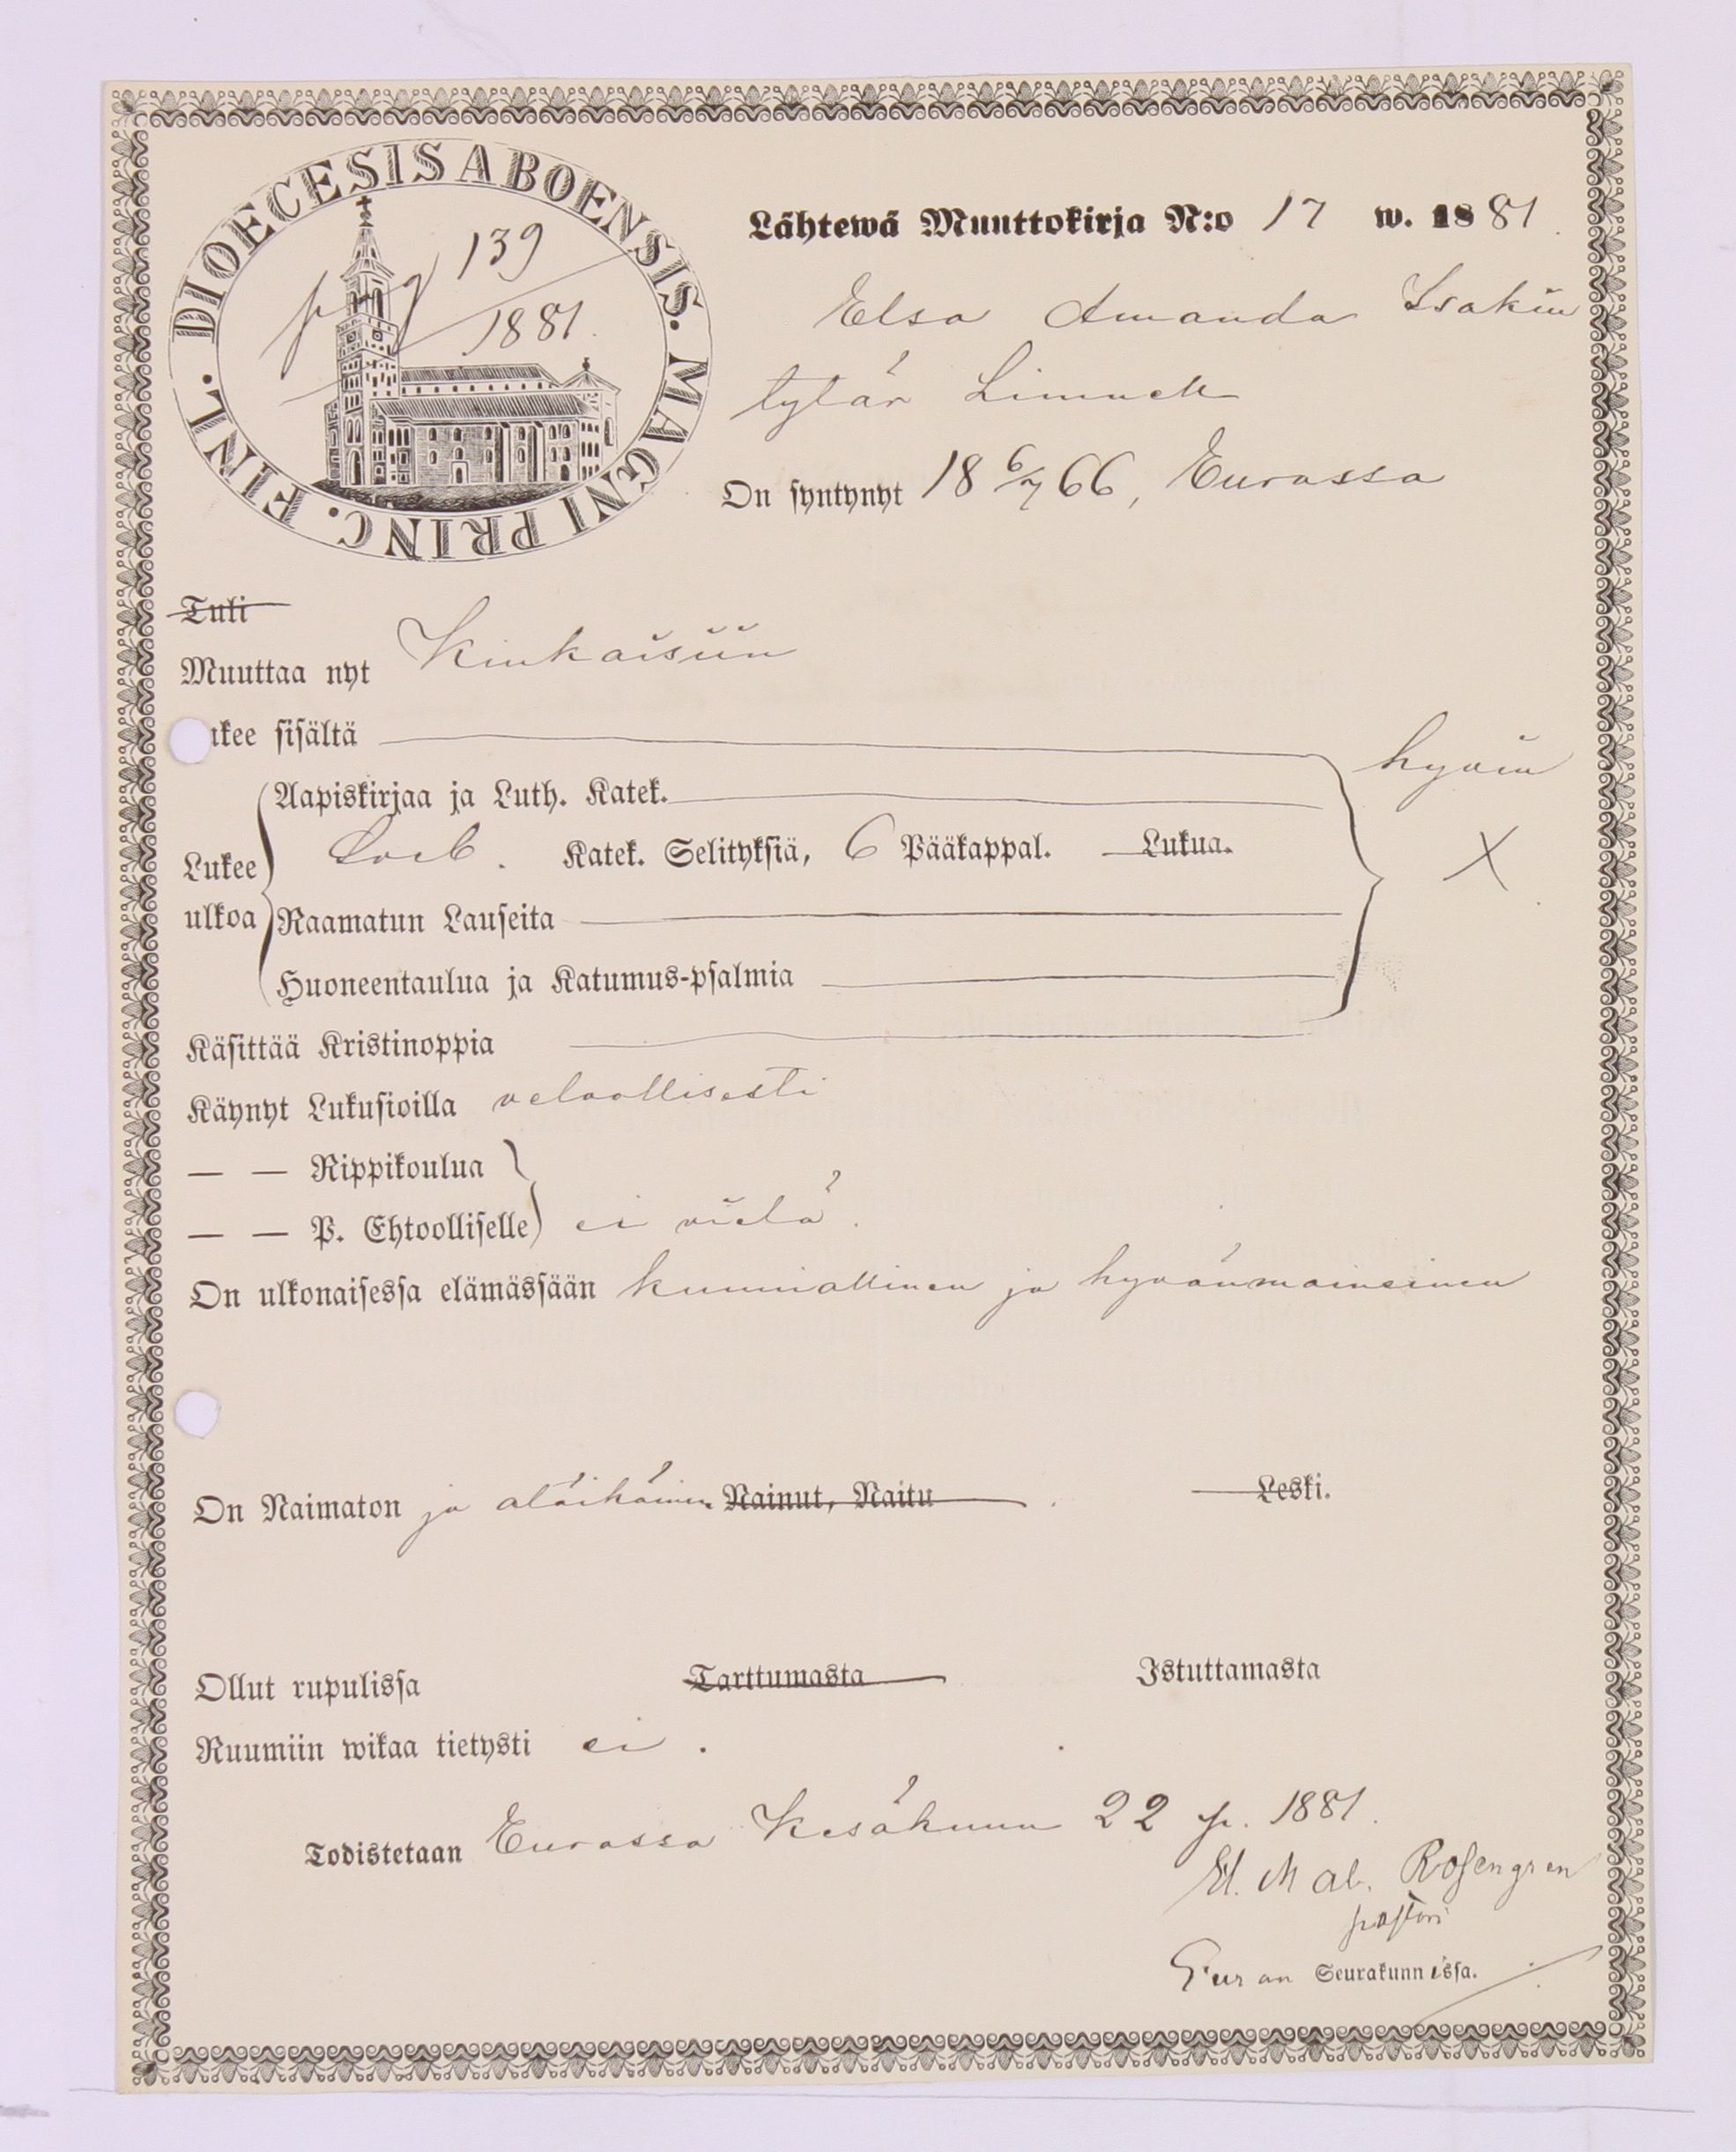 DIOECESIS ABOENSIS. MAGNI PRINC. FINL.
pag 139
1881.
Lähtewä Muuttokirja N:o 17 w. 1881.
Elsa Amanda Isakin
tytär
On syntynyt 18 6/7 66, Eurassa
Tuli
Muuttaa nyt Kiukaisiin
ukee sisältä hyvin
Aapiskirjaa ja Luth. Katek.
Lukee . Katek. Selityksiä, 6 Pääkappal. Lukua. X
ulkoa Raamatun Lauseita
Huoneentaulua ja Katumus-psalmia
Käsittää Kristinoppia
Käynyt Lukusioilla velvollisesti
— — Rippikoulua
— — P. Ehtoolliselle ei vielä.
On ulkonaisessa elämässään kunniallinen ja hyvänmaineinen
On Naimaton ja alaikäinen Nainut, Naitu . Leski.
Ollut rupulissa Tarttumasta Istuttamasta
Ruumiin wikaa tietysti ei .
Todistetaan Eurassa Kesäkuun 22 p. 1881.
Rosengren
pastori
Euran Seurakunnissa.